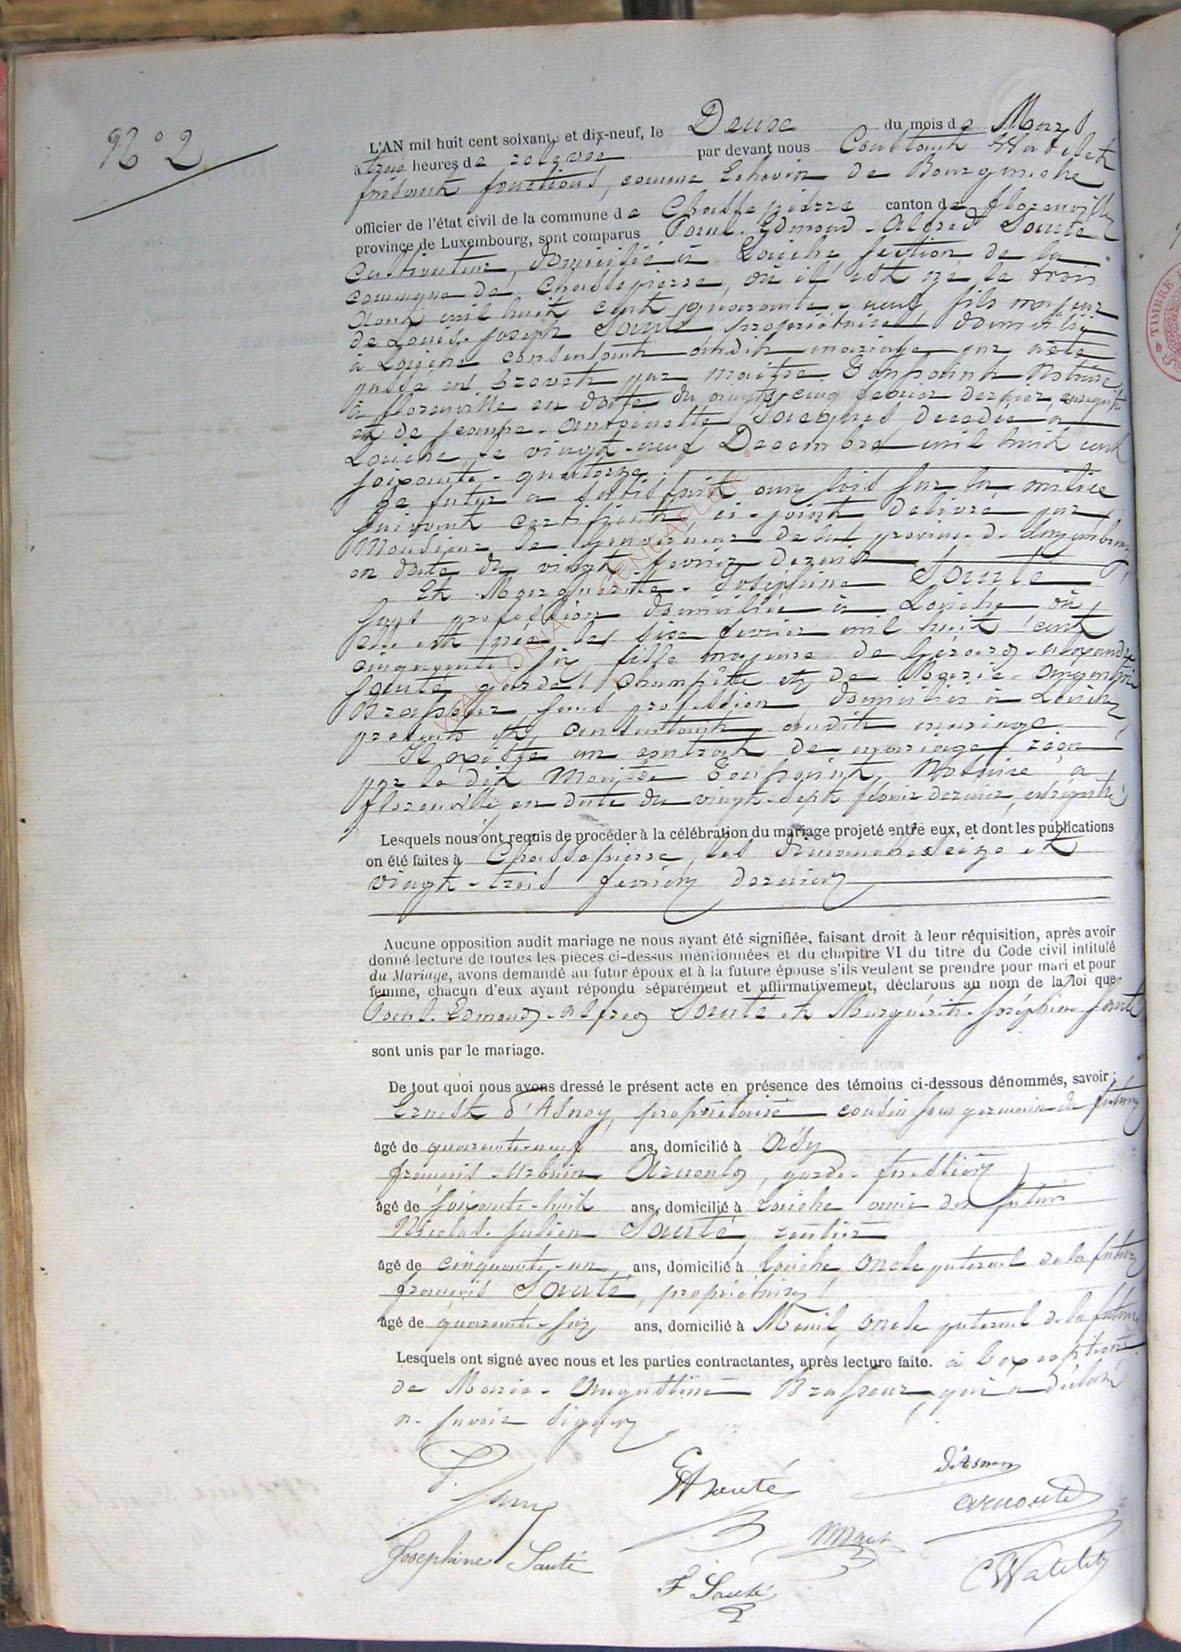 N° 2
L'AN mil huit cent soixante et dix-neuf, le Deuxe du mois de Mars
à trois heures de relevée par devant nous Constant Watelet
faisant fonctions, comme Echevin de Bourgmestre
officier de l'état civil de la commune de Chassepierre canton de florenville
province de Luxembourg, sont comparus Paul-Edmond-Alfred Sauté
Cultivateur, domicilié à Laiche section de la
commune de Chassepierre, où il est né le trois
Août mil huit cent quarante-neuf fils majeur
de Louis-Joseph Sauté propriétaire domicilié
à Laiche consentant audit mariage par acte
passé en brevet par maître Notaire
à florenville en date du vingt-cinq février dernier, enregistré
et de Jeanne-Antoinette Jacques décédée à
Laiche le vingt-neuf Décembre mil huit cent
soixante-quatorze
Le futur a satisfait aux lois sur la milice
suivant certificat ci-joint délivré par
Monsieur le gouverneur de la province de Luxembourg
en date du vingt février dernier
Et Marguerite-Joséphine Sauté
sans profession domiciliée à Laiche où
elle est née le six février mil huit cent
cinquante-six, fille majeure de Gérard-Alexandre
Sauté garde champêtre et de Marie-Augustine
Brasseur sans profession domiciliés à Laiche
présents et consentant audit mariage
Il existe un contrat de mariage reçu
par le dit Maître Notaire à
florenville en date du vingt-sept février dernier, enregistré
Lesquels nous ont requis de procéder à la célébration du mariage projeté entre eux, et dont les publications
on été faites à Chassepierre, les dimanches seize et
vingt-trois février dernier
Aucune opposition audit mariage ne nous ayant été signifiée, faisant droit à leur réquisition, après avoir
donné lecture de toutes les pièces ci-dessus mentionnées et du chapitre VI du titre du Code civil intitulé
du Mariage, avons demandé au futur époux et à la future épouse s'ils veulent se prendre pour mari et pour
femme, chacun d'eux ayant répondu séparément et affirmativement, déclarons au nom de la loi que
Paul-Edmond-Alfred Sauté et Marguérite-Joséphine Sauté
sont unis par le mariage.
De tout quoi nous avons dressé le présent acte en présence des témoins ci-dessous dénommés, savoir :
Ernest d'Asnoy, propriétaire cousin sous germain du futur
âgé de quarante-neuf ans, domicilié à
françois-Urbain Arnould, garde-forestier
âgé de soixante-huit ans, domicilié à Laiche ami des futurs
Nicolas-Julien Sauté, rentier
âgé de cinquante-un ans, domicilié à Laiche oncle paternel de la future
françois Sauté, propriétaire
âgé de quarante-six ans, domicilié à Menil, oncle paternel de la future
Lesquels ont signé avec nous et les parties contractantes, après lecture faite. à l'exception
de Marie-Augustine Brasseur qui a déclaré
ne savoir signer
GASauté
d'Asnoy
Arnould
Josephine Sauté
F Sauté
C Watelet
TIMBRE